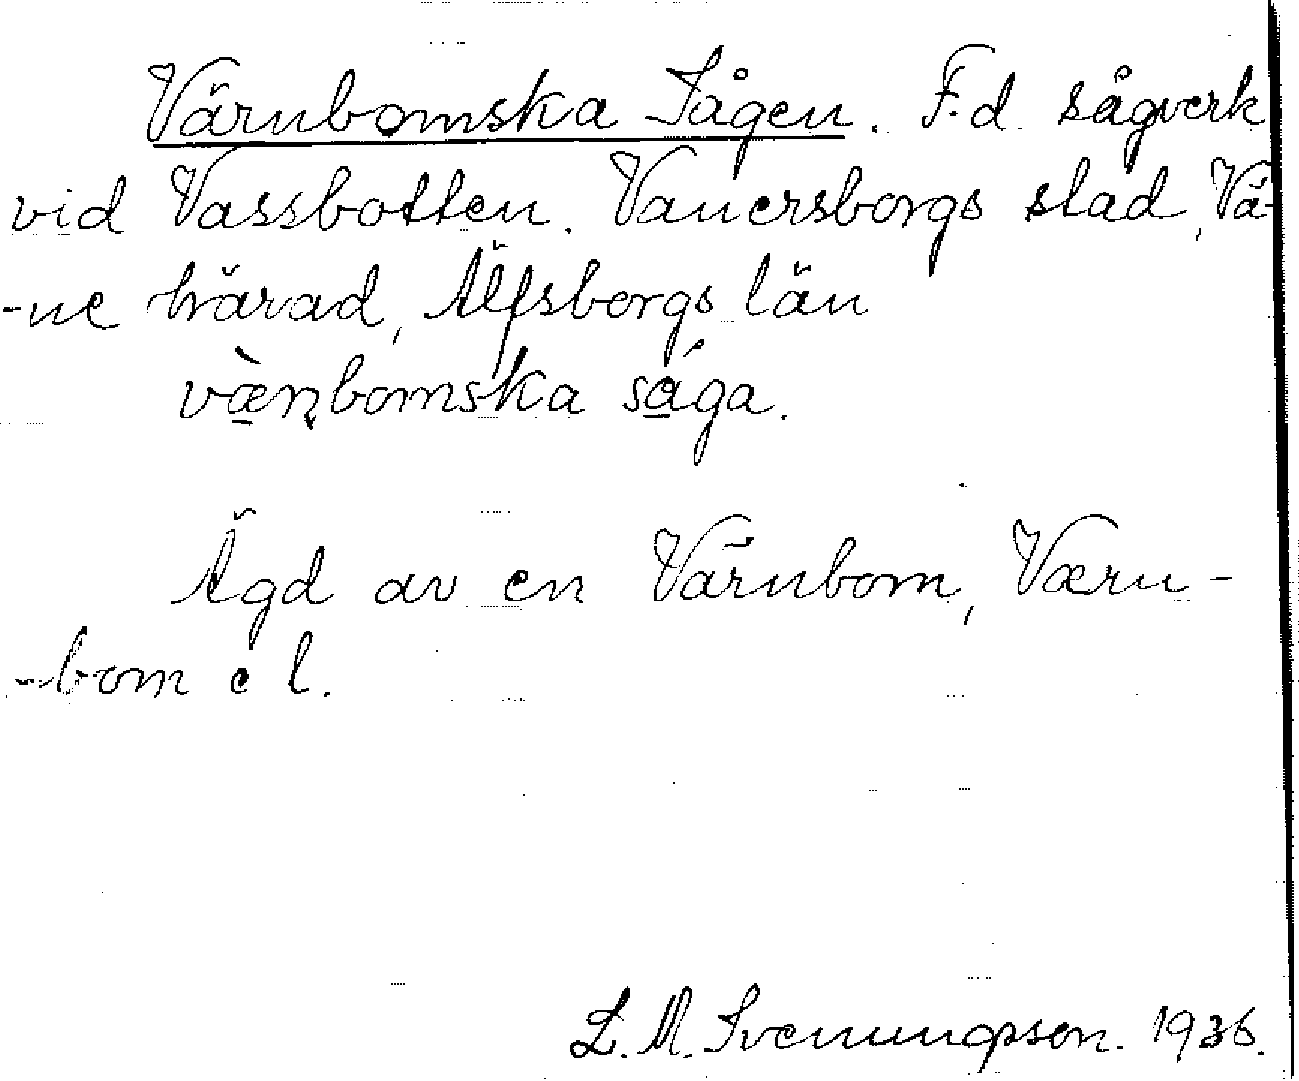 Värnbomska Sågen. F.d. sågverk
vid Vassbotten. Vanersborgs stad, Vä-
-ne härad, Älfsborgs län
væ̀ṇbomska såga.
Ägd av en Värnbom, Værn-
-bom e l.
L. M. Svenungsson. 1936.